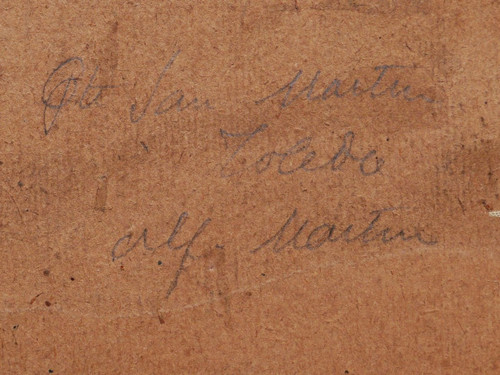 San Martin
Toledo
Alf. Martin